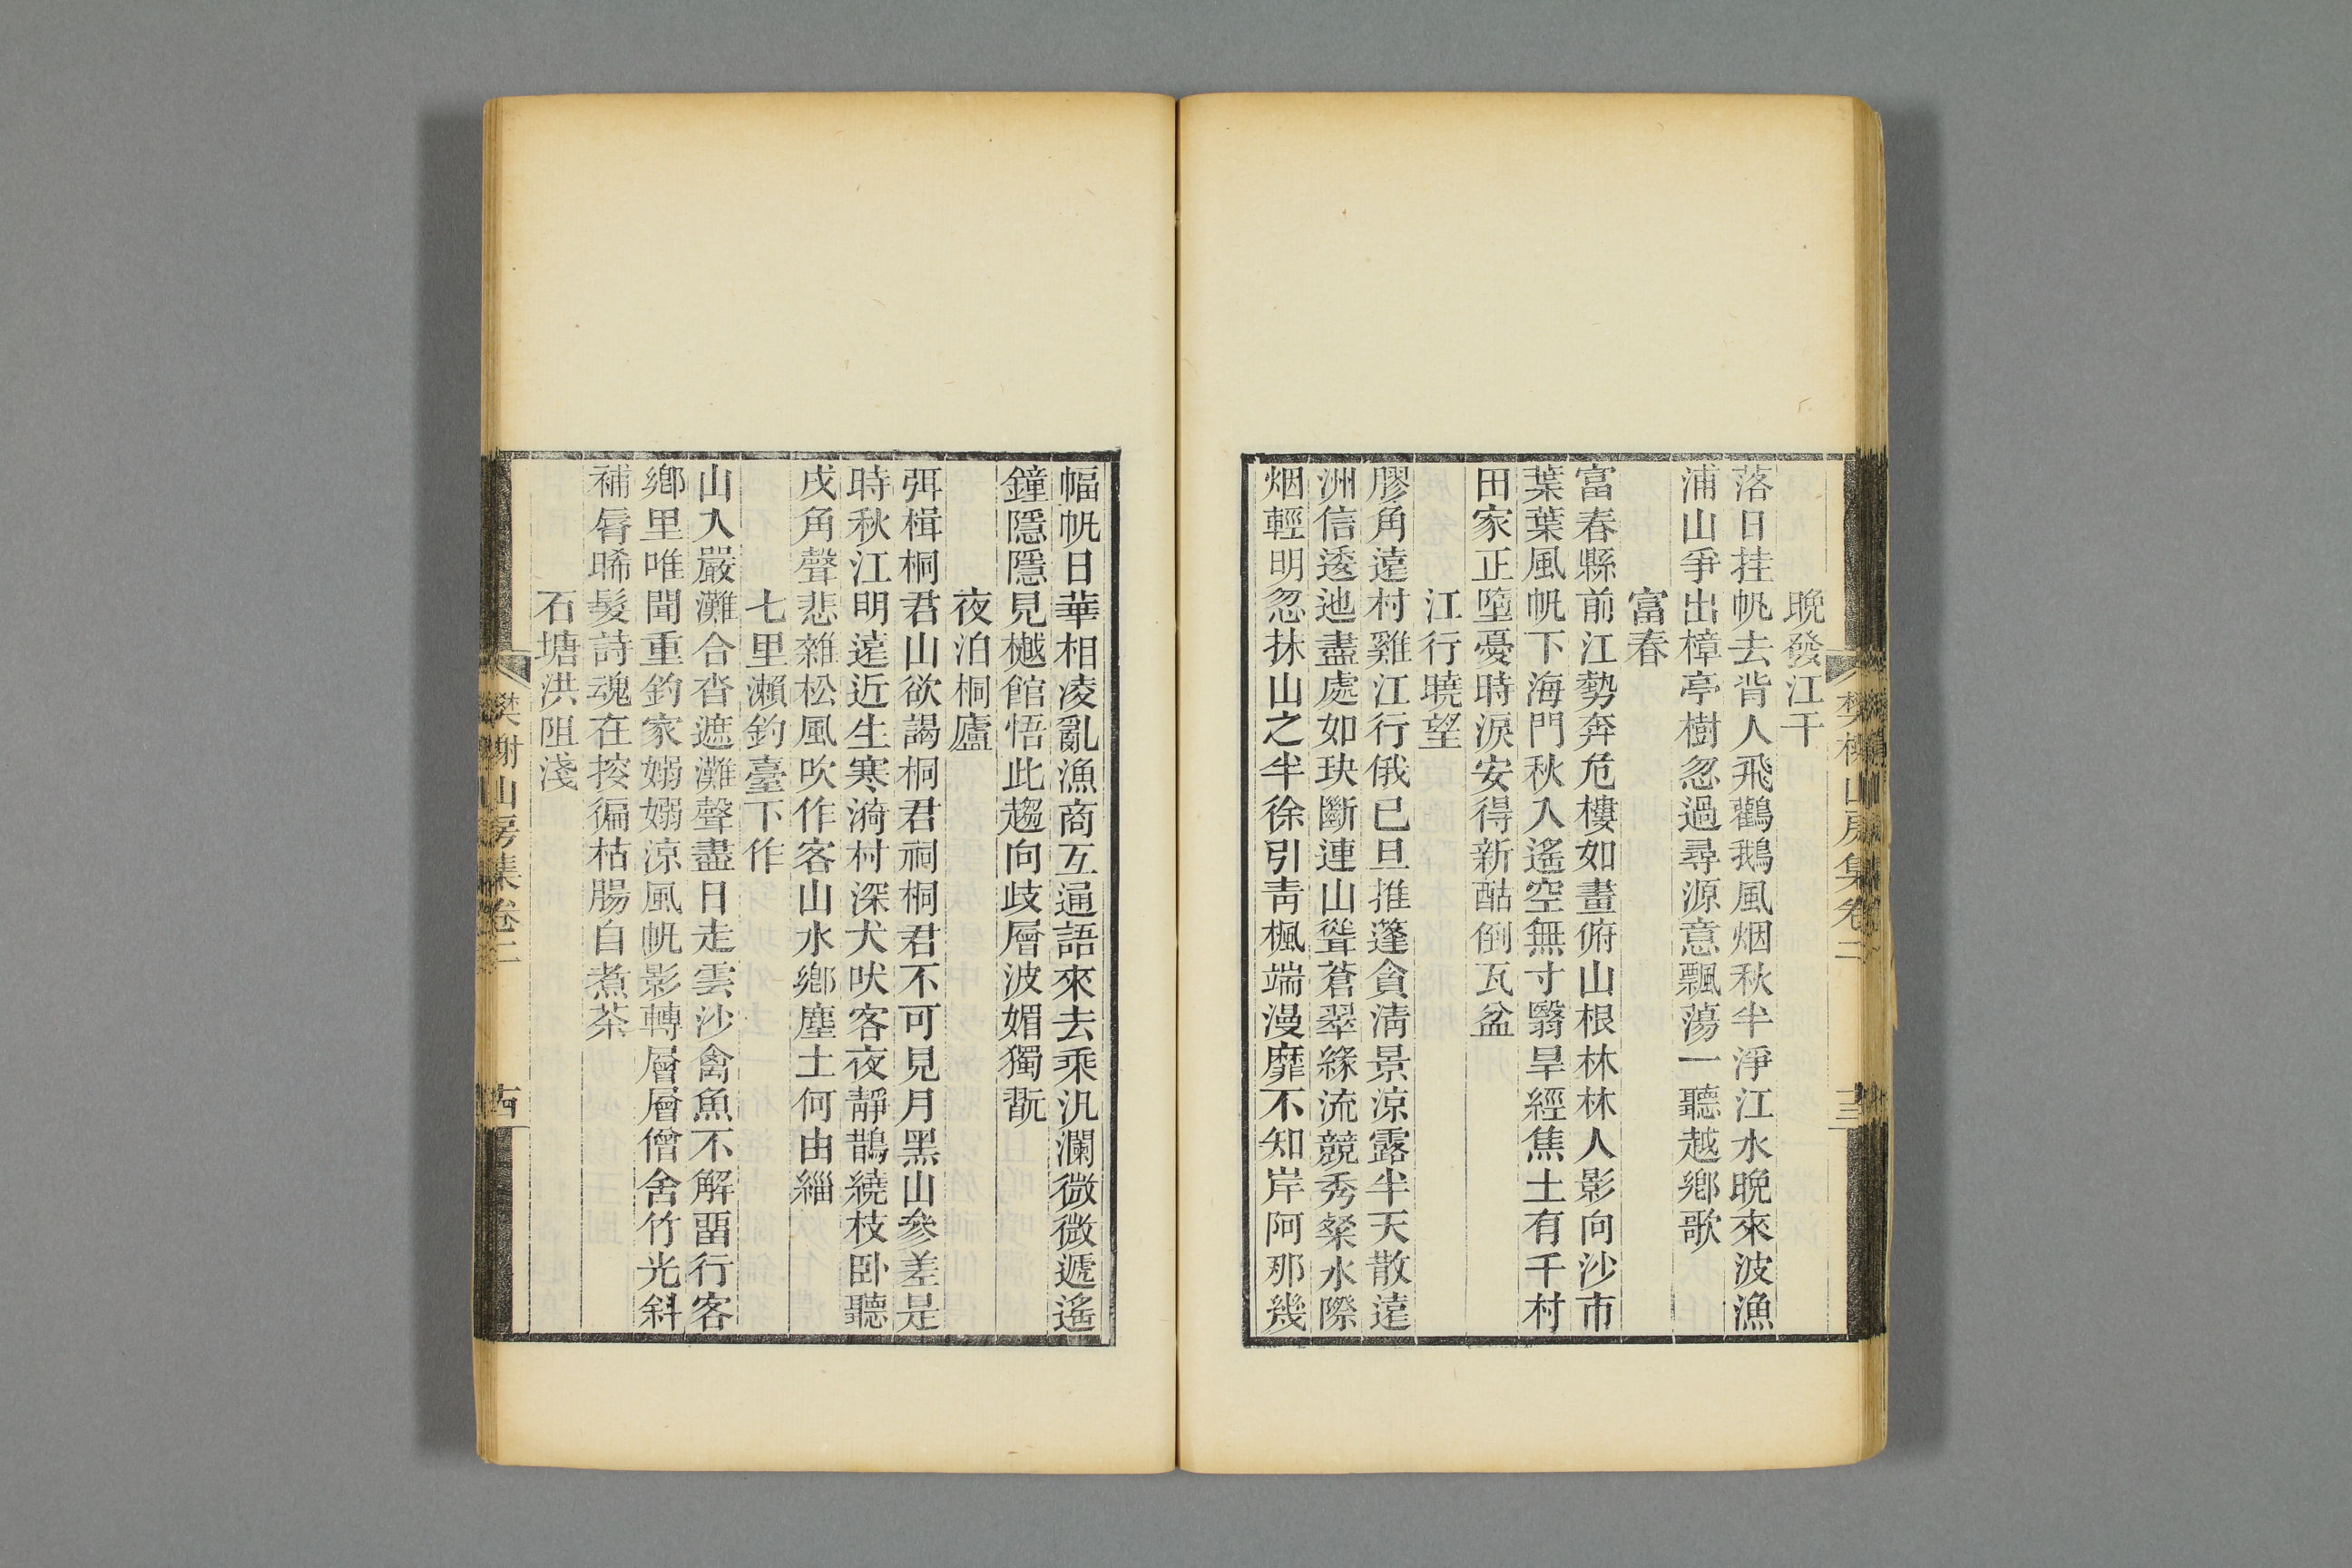 樊榭山房集卷二
十三
晚發江干
落日挂帆去背人飛鸛鵝風烟秋半淨江水晚來波漁
浦山爭出樟亭樹忽過尋源意飄蕩一聽越鄉歌
富春
富春縣前江勢奔危樓如畫俯山根林林人影向沙市
葉葉風帆下海門秋入遙空無寸翳旱經焦土有千村
田家正墮憂時淚安得新酤倒瓦盆
江行曉望
膠角遠村雞江行俄已旦推蓬貪淸景涼露半天散遠
洲信逶迆盡處如玦斷連山聳蒼翠緣流競秀粲水際
烟輕明忽抹山之半徐引靑楓端漫靡不知岸阿那幾
幅帆日華相凌亂漁商互逼語來去乘汎瀾微微遞遙
鐘隱隱見樾館悟此趨向歧層波媚獨翫
夜泊桐廬
弭楫桐君山欲謁桐君祠桐君不可見月黑山參差是
時秋江明遠近生寒漪村深犬吠客夜靜鵲繞枝卧聽
戍角聲悲雜松風吹作客山水鄉塵土何由緇
七里瀨釣臺下作
山入嚴灘合沓遮灘聲盡日走雲沙禽魚不解畱行客
鄉里唯聞重釣家嫋嫋涼風帆影轉層層僧舍竹光斜
補脣晞髮詩魂在挼徧枯腸自煮茶
石塘洪阻淺
樊榭山房集卷二
十四